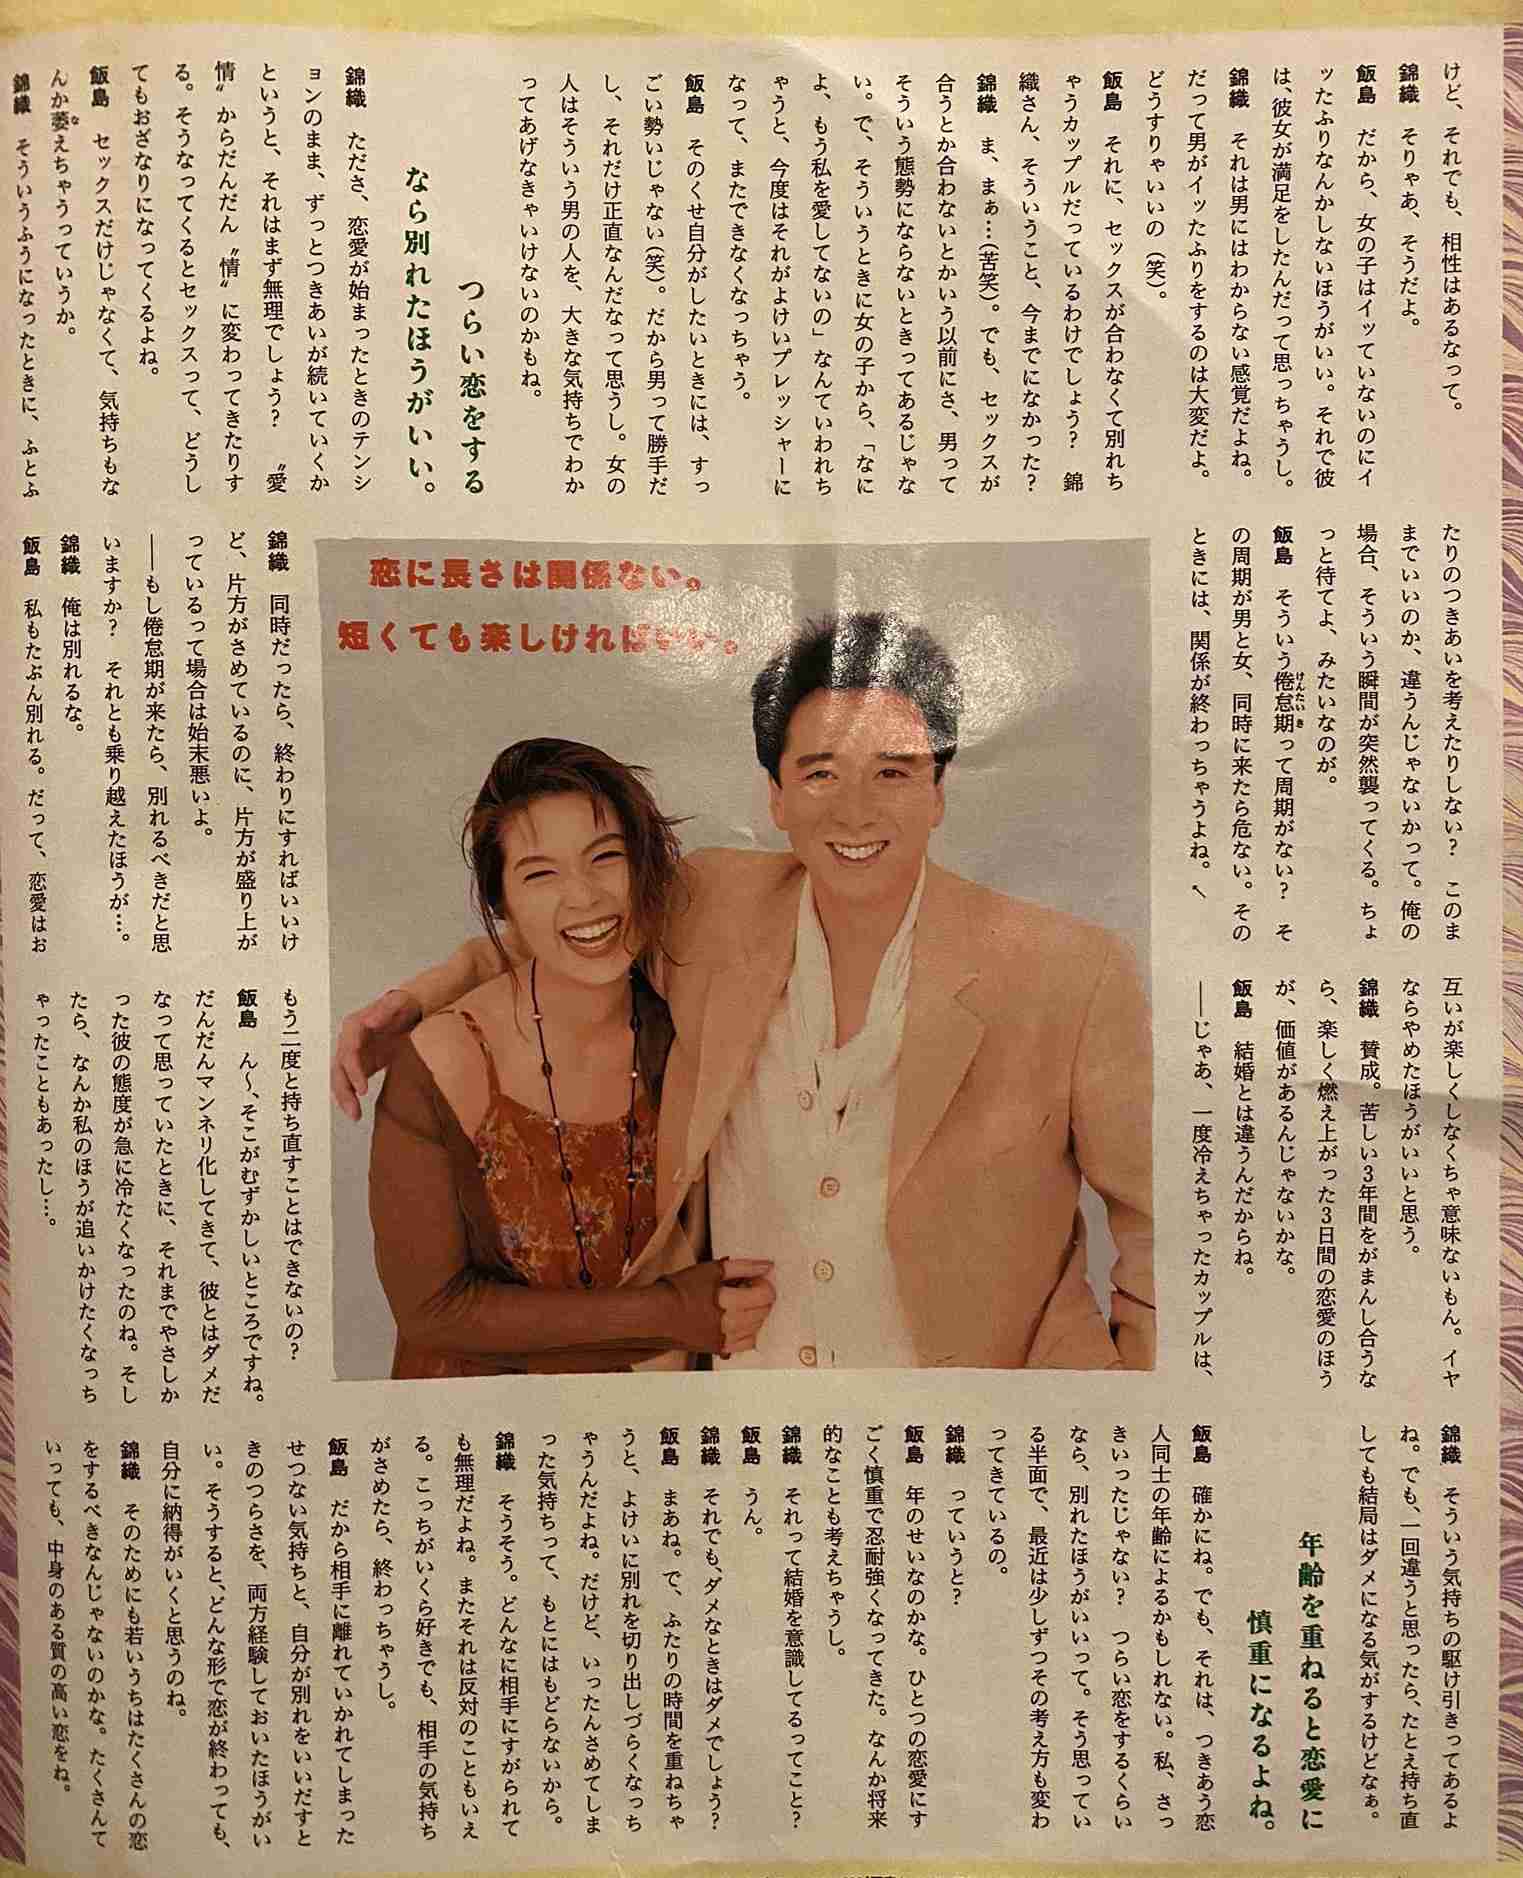 けど、それでも、相性はあるなって。
錦織　そりゃあ、そうだよ。
飯島　だから、女の子はイッていないのにイ
ッたふりなんかしないほうがいい。それで彼
は、彼女が満足をしたんだって思っちゃうし。
錦織　それは男にはわからない感覚だよね。
だって男がイッたふりをするのは大変だよ。
どうすりゃいいの（笑）。
飯島　それに、セックスが合わなくて別れち
ゃうカップルだっているわけでしょう？　錦
織さん、そういうこと、今までになかった？
錦織　ま、まぁ…（苦笑）。でも、セックスが
合うとか合わないとかいう以前にさ、男って
そういう態勢にならないときってあるじゃな
い。で、そういうときに女の子から、「なに
よ、もう私を愛してないの」なんていわれち
ゃうと、今度はそれがよけいプレッシャーに
なって、またできなくなっちゃう。
飯島　そのくせ自分がしたいときには、すっ
ごい勢いじゃない（笑）。だから男って勝手だ
し、それだけ正直なんだなって思うし。女の
人はそういう男の人を、大きな気持ちでわか
ってあげなきゃいけないのかもね。
つらい恋をする
なら別れたほうがいい。
錦織　たださ、恋愛が始まったときのテンシ
ョンのまま、ずっとつきあいが続いていくか
というと、それはまず無理でしょう？　〝愛
情〟からだんだん〝情〟に変わってきたりす
る。そうなってくるとセックスって、どうし
てもおざなりになってくるよね。
飯島　セックスだけじゃなくて、気持ちもな
んか萎えちゃうっていうか。
な
錦織　そういうふうになったときに、ふとふ
たりのつきあいを考えたりしない？　このま
までいいのか、違うんじゃないかって。俺の
場合、そういう瞬間が突然襲ってくる。ちょ
っと待てよ、みたいなのが。
飯島　そういう倦怠期って周期がない？　そ
けんたいき
の周期が男と女、同時に来たら危ない。その
ときには、関係が終わっちゃうよね。↖
恋に長さは関係ない。
短くても楽しければいい。
錦織　同時だったら、終わりにすればいいけ
ど、片方がさめているのに、片方が盛り上が
っているって場合は始末悪いよ。
――もし倦怠期が来たら、別れるべきだと思
いますか？　それとも乗り越えたほうが…。
錦織　俺は別れるな。
飯島　私もたぶん別れる。だって、恋愛はお
互いが楽しくしなくちゃ意味ないもん。イヤ
ならやめたほうがいいと思う。
錦織　賛成。苦しい３年間をがまんし合うな
ら、楽しく燃え上がった３日間の恋愛のほう
が、価値があるんじゃないかな。
飯島　結婚とは違うんだからね。
――じゃあ、一度冷えちゃったカップルは、
もう二度と持ち直すことはできないの？
飯島　ん～、そこがむずかしいところですね。
だんだんマンネリ化してきて、彼とはダメだ
なって思っていたときに、それまでやさしか
った彼の態度が急に冷たくなったのね。そし
たら、なんか私のほうが追いかけたくなっち
ゃったこともあったし…。
錦織　そういう気持ちの駆け引きってあるよ
ね。でも、一回違うと思ったら、たとえ持ち直
しても結局はダメになる気がするけどなぁ。
年齢を重ねると恋愛に
慎重になるよね。
飯島　確かにね。でも、それは、つきあう恋
人同士の年齢によるかもしれない。私、さっ
きいったじゃない？　つらい恋をするくらい
なら、別れたほうがいいって。そう思ってい
る半面で、最近は少しずつその考え方も変わ
ってきているの。
錦織　っていうと？
飯島　年のせいなのかな。ひとつの恋愛にす
ごく慎重で忍耐強くなってきた。なんか将来
的なことも考えちゃうし。
錦織　それって結婚を意識してるってこと？
飯島　うん。
錦織　それでも、ダメなときはダメでしょう？
飯島　まあね。で、ふたりの時間を重ねちゃ
うと、よけいに別れを切り出しづらくなっち
ゃうんだよね。だけど、いったんさめてしま
った気持ちって、もとにはもどらないから。
錦織　そうそう。どんなに相手にすがられて
も無理だよね。またそれは反対のこともいえ
る。こっちがいくら好きでも、相手の気持ち
がさめたら、終わっちゃうし。
飯島　だから相手に離れていかれてしまった
せつない気持ちと、自分が別れをいいだすと
きのつらさを、両方経験しておいたほうがい
い。そうすると、どんな形で恋が終わっても、
自分に納得がいくと思うのね。
錦織　そのためにも若いうちはたくさんの恋
をするべきなんじゃないのかな。たくさんて
いっても、中身のある質の高い恋をね。